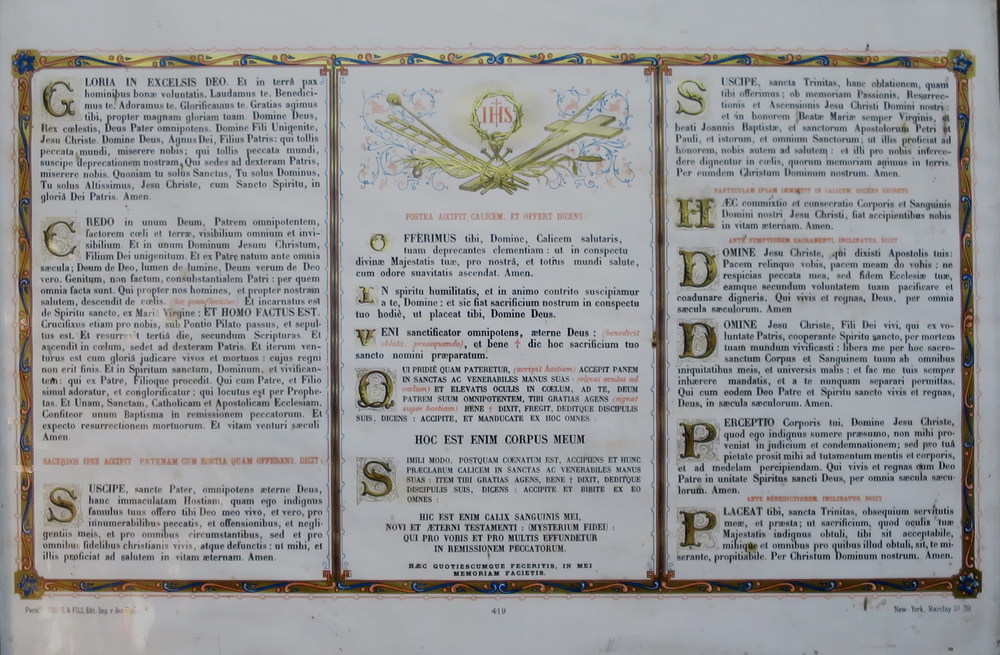 GLORIA IN EXCELSIS DEO. Et in terrâ pax
hominibus bonæ voluntatis. Laudamus te. Benedici-
mus te. Adoramus te. Glorificamus te. Gratias agimus
tibi, propter magnam gloriam tuam. Domine Deus,
Rex cœlestis, Deus Pater omnipotens. Domine Fili Unigenite,
Jesu Christe. Domine Deus, Agnus Dei, Filius Patris: qui tollis
peccata mundi, miserere nobis; qui tollis peccata mundi,
suscipe deprecationem nostram. Qui sedes ad dexteram Patris,
miserere nobis. Quoniam tu solus Sanctus, Tu solus Dominus,
Tu solus Altissimus, Jesu Christe, cum Sancto Spiritu, in
gloriâ Dei Patris. Amen.
CREDO in unum Deum, Patrem omnipotentem,
factorem cœli et terræ, visibilium omnium et invi-
sibilium. Et in unum Dominum Jesum Christum,
Filium Dei unigenitum. Et ex Patre natum ante omnia
sæcula; Deum de Deo, lumen de lumine, Deum verum de Deo
vero. Genitum, non factum, consubstantialem Patri: per quem
omnia facta sunt. Qui propter nos homines, et propter nostram
salutem, descendit de cœlis. (hic genuflectitur) Et incarnatus est
de Spiritu sancto, ex Mariâ Virgine: ET HOMO FACTUS EST.
Crucifixus etiam pro nobis, sub Pontio Pilato passus, et sepul-
tus est. Et resurrexit tertiâ die, secundum Scripturas. Et
ascendit in cœlum, sedet ad dexteram Patris. Et iterum ven-
turus est cum gloriâ judicare vivos et mortuos: cujus regni
non erit finis. Et in Spiritum sanctum, Dominum, et vivifican-
tem: qui ex Patre, Filioque procedit. Qui cum Patre, et Filio
simul adoratur, et conglorificatur; qui locutus est per Prophe-
tas. Et Unam, Sanctam, Catholicam et Apostolicam Ecclesiam.
Confiteor unum Baptisma in remissionem peccatorum. Et
expecto resurrectionem mortuorum. Et vitam venturi sæculi
Amen.
SACERDOS IPSE ACCIPIT PATENAM CUM HOSTIA QUAM OFFERENS, DICIT:
SUSCIPE, sancte Pater, omnipotens æterne Deus,
hanc immaculatam Hostiam, quam ego indignus
famulus tuus offero tibi Deo meo vivo, et vero, pro
innumerabilibus peccatis, et offensionibus, et negli-
gentiis meis, et pro omnibus circumstantibus, sed et pro
omnibus fidelibus christianis vivis, atque defunctis; ut mihi, et
illis proficiat ad salutem in vitam æternam. Amen.
IHS
POSTEA ACCIPIT CALICEM, ET OFFERT DICENS:
OFFERIMUS tibi, Domine, Calicem salutaris,
tuam deprecantes clementiam: ut in conspectu
divinæ Majestatis tuæ, pro nostrâ, et totius mundi salute,
cum odore suavitatis ascendat. Amen.
IN spiritu humilitatis, et in animo contrito suscipiamur
a te, Domine: et sic fiat sacrificium nostrum in conspectu
tuo hodiè, ut placeat tibi, Domine Deus.
VENI sanctificator omnipotens, æterne Deus: (benedicit
oblata, prosequendo), et bene † dic hoc sacrificium tuo
sancto nomini præparatum.
QUI PRIDIÈ QUAM PATERETUR, (accipit hostiam) ACCEPIT PANEM
IN SANCTAS AC VENERABILES MANUS SUAS (elevat oculos ad
cœlum) ET ELEVATIS OCULIS IN CŒLUM, AD TE, DEUM
PATREM SUUM OMNIPOTENTEM, TIBI GRATIAS AGENS (signat
super hostiam) BENE † DIXIT, FREGIT, DEDITQUE DISCIPULIS
SUIS, DICENS: ACCIPITE, ET MANDUCATE EX HOC OMNES:
HOC EST ENIM CORPUS MEUM
SIMILI MODO, POSTQUAM CŒNATUM EST, ACCIPIENS ET HUNC
PRÆCLARUM CALICEM IN SANCTAS AC VENERABILES MANUS
SUAS: ITEM TIBI GRATIAS AGENS, BENE † DIXIT, DEDITQUE
DISCIPULIS SUIS, DICENS: ACCIPITE ET BIBITE EX EO
OMNES:
HIC EST ENIM CALIX SANGUINIS MEI,
NOVI ET ÆTERNI TESTAMENTI: (MYSTERIUM FIDEI:)
QUI PRO VOBIS ET PRO MULTIS EFFUNDETUR
IN REMISSIONEM PECCATORUM.
HÆC QUOTIESCUMQUE FECERITIS, IN MEI
MEMORIAM FACIETIS.
SUSCIPE, sancta Trinitas, hanc oblationem, quam
tibi offerimus; ob memoriam Passionis, Resurrec-
tionis et Ascensionis Jesu Christi Domini nostri:
et in honorem Beatæ Mariæ semper Virginis, et
beati Joannis Baptistæ, et sanctorum Apostolorum Petri et
Pauli, et istorum, et omnium Sanctorum; ut illis proficiat ad
honorem, nobis autem ad salutem: et illi pro nobis interce-
dere dignentur in cœlis, quorum memoriam agimus in terris.
Per eumdem Christum Dominum nostrum. Amen.
PARTICULAM IPSAM IMMITTIT IN CALICEM, DICENS SECRETE:
HÆC commixtio et consecratio Corporis et Sanguinis
Domini nostri Jesu Christi, fiat accipientibus nobis
in vitam æternam. Amen.
ANTE SUMPTIONEM SACRAMENTI, INCLINATUS, DICIT
DOMINE Jesu Christe, qui dixisti Apostolis tuis:
Pacem relinquo vobis, pacem meam do vobis: ne
respicias peccata mea, sed fidem Ecclesiæ tuæ,
eamque secundum voluntatem tuam pacificare et
coadunare digneris. Qui vivis et regnas, Deus, per omnia
sæcula sæculorum. Amen
DOMINE Jesu Christe, Fili Dei vivi, qui ex vo-
luntate Patris, cooperante Spiritu sancto, per mortem
tuam mundum vivificasti: libera me per hoc sacro-
sanctum Corpus et Sanguinem tuum ab omnibus
iniquitatibus meis, et universis malis: et fac me tuis semper
inhærere mandatis, et a te nunquam separari permittas.
Qui cum eodem Deo Patre et Spiritu sancto vivis et regnas,
Deus, in sæcula sæculorum. Amen.
PERCEPTIO Corporis tui, Domine Jesu Christe,
quod ego indignus sumere præsumo, non mihi pro-
veniat in judicium et condemnationem; sed pro tuâ
pietate prosit mihi ad tutamentum mentis et corporis,
et ad medelam percipiendam. Qui vivis et regnas cum Deo
Patre in unitate Spiritus sancti Deus, per omnia sæcula sæcu-
lorum. Amen.
ANTE BENEDICTIONEM, INCLINATUS, DICIT
PLACEAT tibi, sancta Trinitas, obsequium servitutis
meæ, et præsta; ut sacrificium, quod oculis tuæ
Majestatis indignus obtuli, tibi sit acceptabile,
mihique et omnibus pro quibus illud obtuli, sit, te mi-
serante, propitiabile. Per Christum Dominum nostrum. Amen.
& FILS, Edit. Imp.
419
New-York, Barclay St